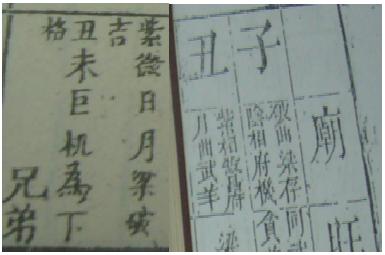 紫微日月梁破
吉
丑未巨机為下
格
兄弟
廟
旺
子
破曲梁存
陰相府機
同武
貪
丑
月曲武羊
梁